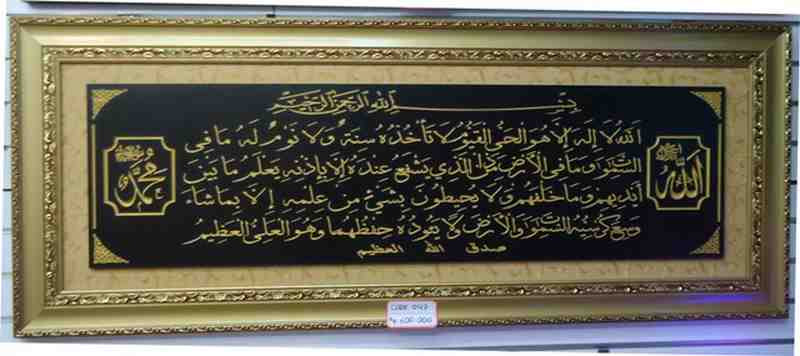 بسم الله الرحمن الرحيم
الله لا إله إلا هو الحي القيوم لا تأخذه سنة ولا نوم له ما في
السموات وما في الأرض من ذا الذي يشفع عنده إلا بإذنه يعلم ما بين
أيديهم وما خلفهم ولا يحيطون بشيء من علمه إلا بما شاء
وسع كرسيه السموات والأرض ولا يئوده حفظهما وهو العلي العظيم
صدق الله العظيم
الله
محمد